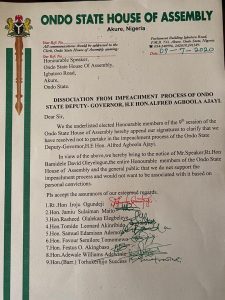 ONDO STATE HOUSE OF ASSEMBLY
Akure, Nigeria
Our Ref No.
All communications should be addressed to the
Clerk, Ondo State House of Assembly
Parliament Building Igbatoro Road,
Akure, Ondo State, Nigeria
Date 09-7-2020
Honourable Speaker,
Ondo State House Of Assembly,
Igbatoro Road,
Akure,
Ondo State.
DISSOCIATION FROM IMPEACHMENT PROCESS OF ONDO
STATE DEPUTY- GOVERNOR, H.E HON. ALFRED AGBOOLA AJAYI.
Dear Sir,
We the underlisted elected Honourable members of the 9th session of the
Ondo State House of Assembly hereby append our signatures to clarify that we
have resolved not to partake in the impeachment process of the Ondo State
Deputy-Governor,H.E Hon. Alfred Agboola Ajayi.
In view of the above,we hereby bring to the notice of Mr.Speaker;Rt.Hon
Bamidele David Oleyelogun,the entire Honourable members of the Ondo State
House of Assembly and the general public that we do not support the
impeachment process and would not want to be associated with it based on
personal convictions.
Pls accept the assurances of our esteemed regards.
1.Rt.Hon Iroju Ogundeji
2.Hon. Jamiu Sulaiman Maito
3.Hon.Rasheed Olalekan Elegbeleye
4.Hon.Tomide Leonard Akinribido
5.Hon. Samuel Edamisan Ademola
6.Hon. Favour Semilore Tomomowo
7.Hon. Festus O. Akingbaso
8.Hon.Adewale Williams Adewinle
9.Hon.(Barr.) Torhukerhijo Success